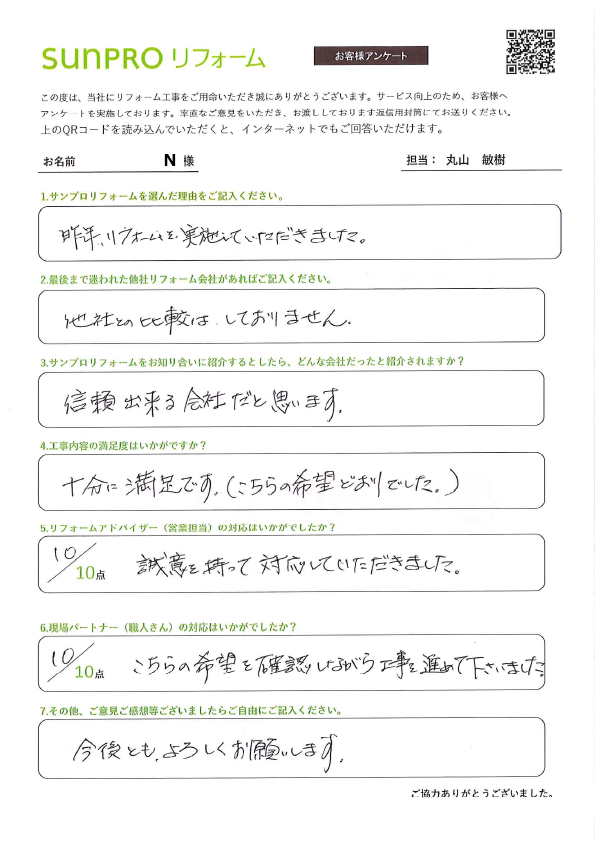 SUNPRO リフォーム
お客様アンケート
この度は、当社にリフォーム工事をご用命いただき誠にありがとうございます。サービス向上のため、お客様へ
アンケートを実施しております。率直なご意見をいただき、お渡ししております返信用封筒にてお送りください。
上のQRコードを読み込んでいただくと、インターネットでもご回答いただけます。
お名前 N 様 担当： 丸山 敏樹
1.サンプロリフォームを選んだ理由をご記入ください。
昨年、リフォームを実施していただきました。
2.最後まで迷われた他社リフォーム会社があればご記入ください。
他社との比較は、しておりません。
3.サンプロリフォームをお知り合いに紹介するとしたら、どんな会社だったと紹介されますか？
信頼出来る会社だと思います。
4.工事内容の満足度はいかがですか？
十分に満足です。(こちらの希望どおりでした。)
5.リフォームアドバイザー（営業担当）の対応はいかがでしたか？
10/10点 誠意を持って対応していただきました。
6.現場パートナー（職人さん）の対応はいかがでしたか？
10/10点 こちらの希望を確認しながら工事を進めて下さいました
7.その他、ご意見ご感想等ございましたらご自由にご記入ください。
今後とも、よろしくお願いします。
ご協力ありがとうございました。